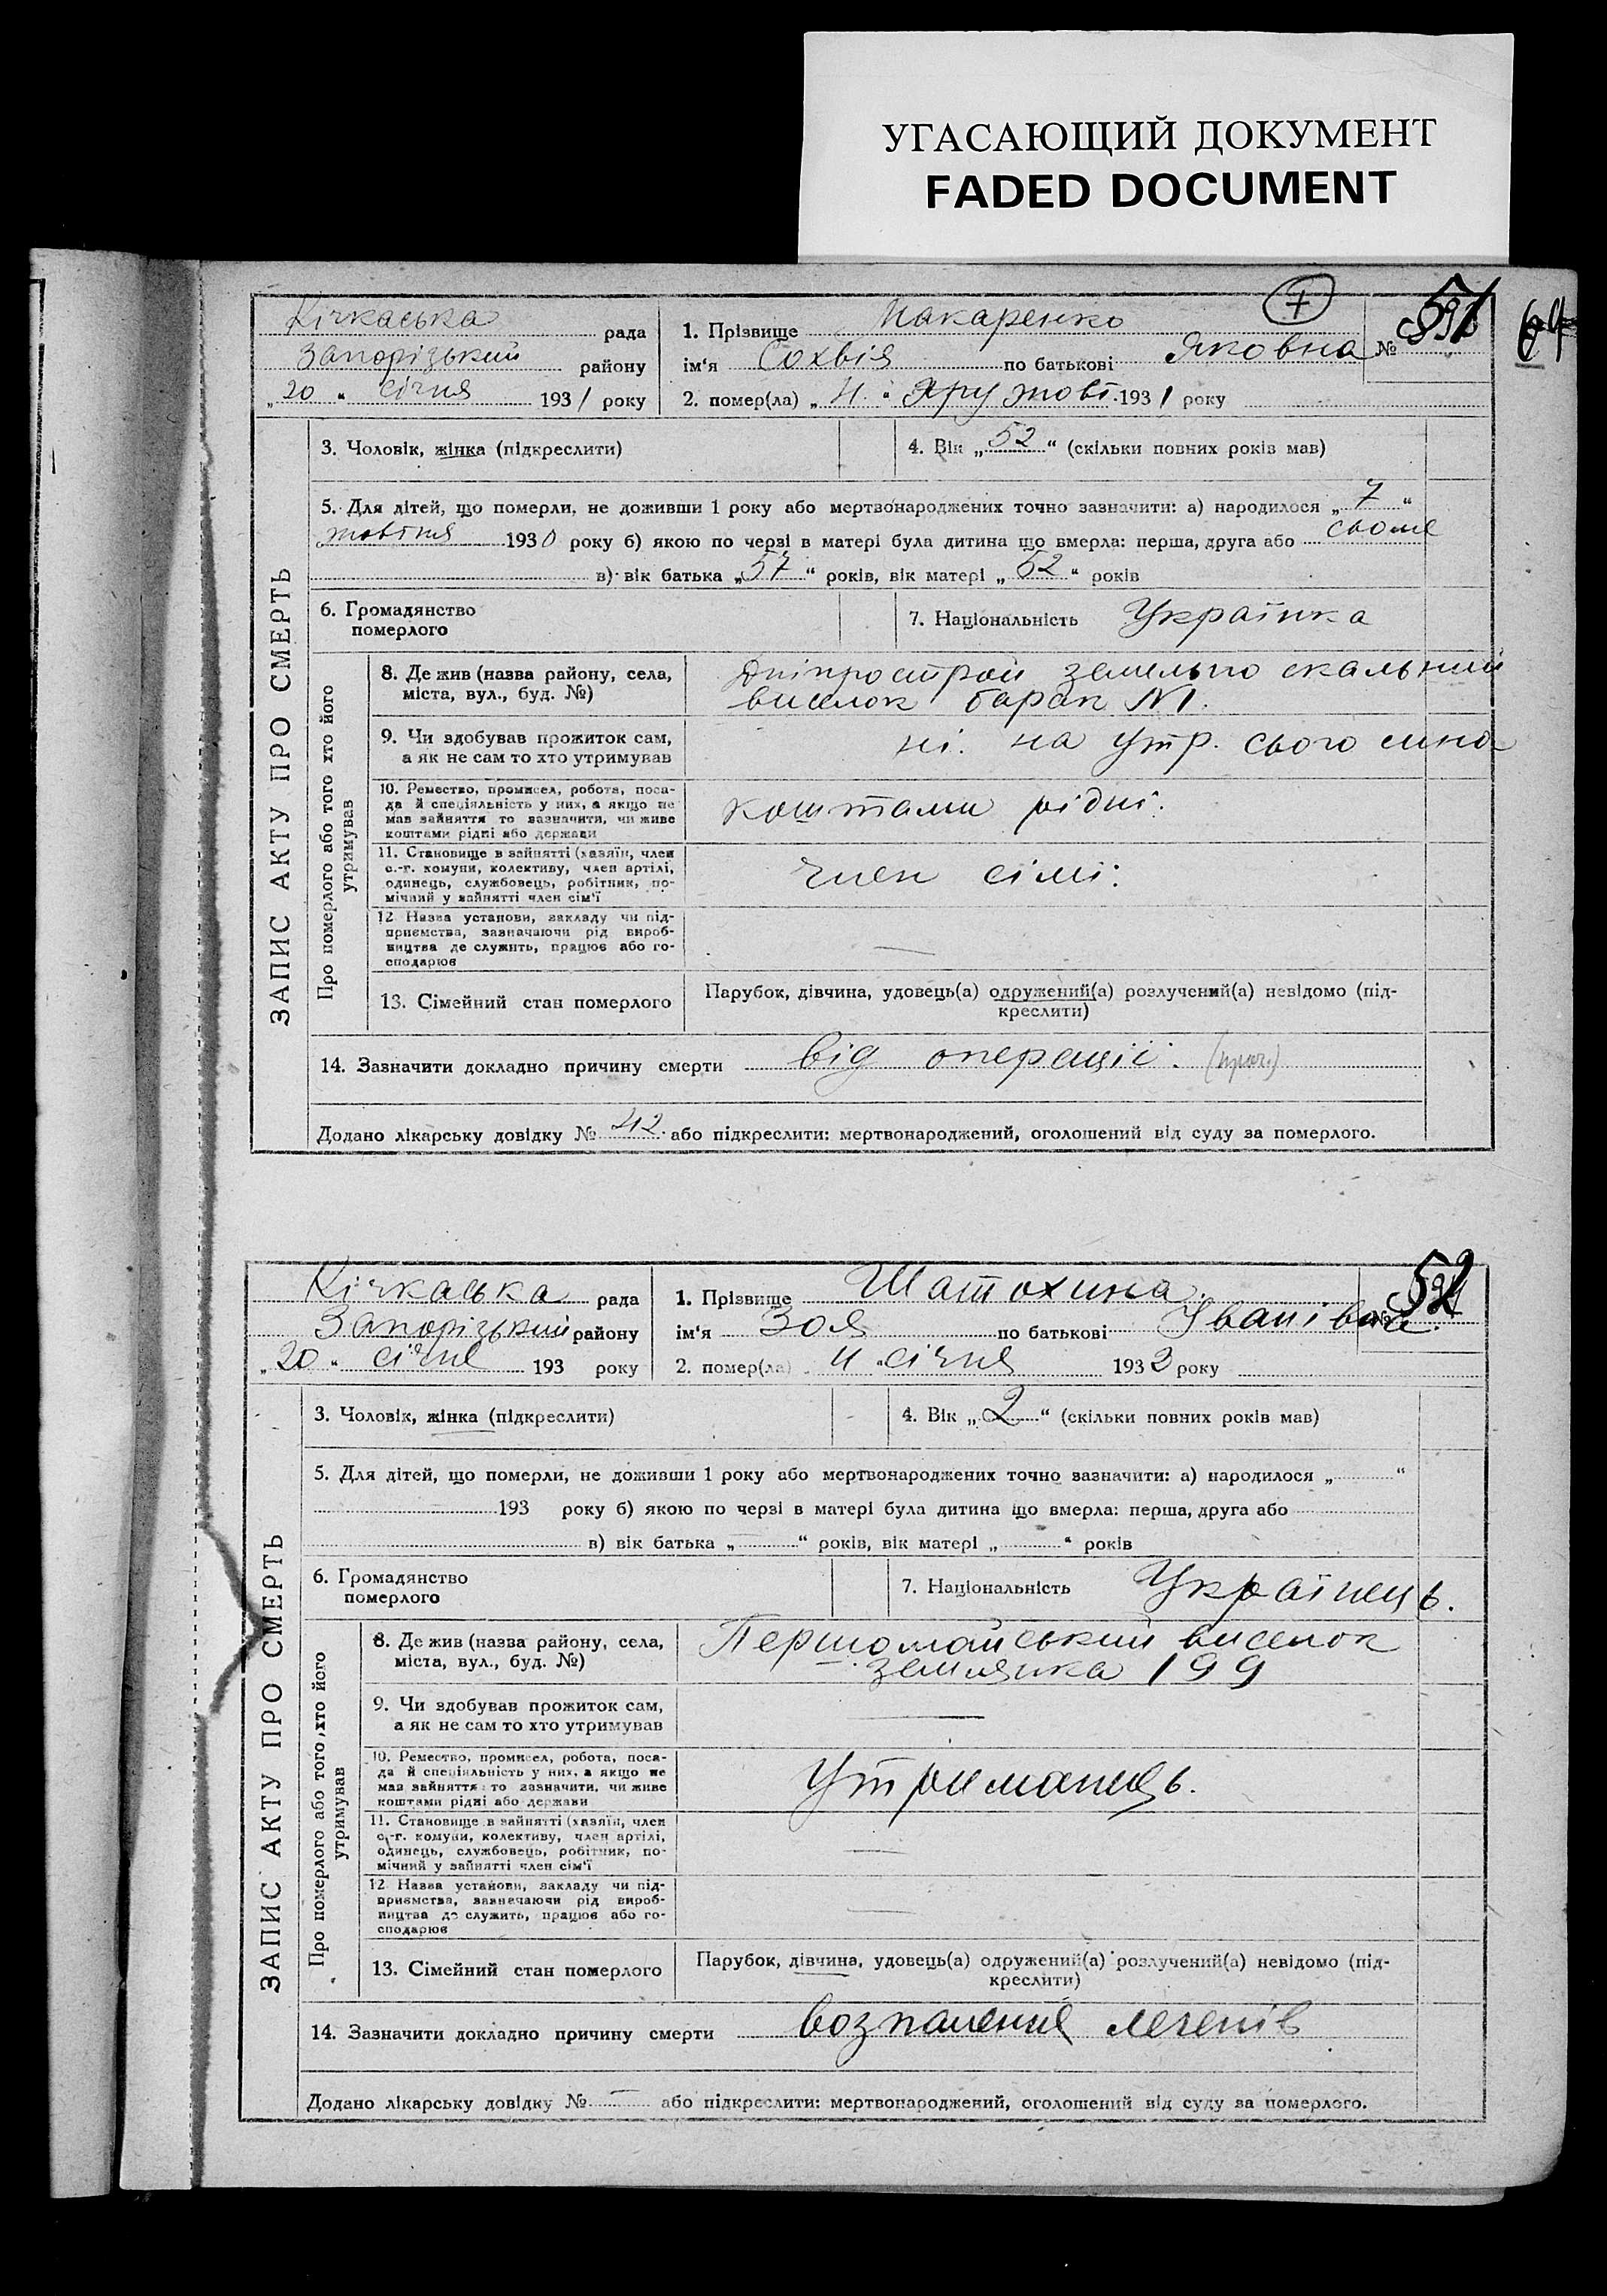 УГАСАЮЩИЙ ДОКУМЕНТ
FADED DOCUMENT
Кічкаська рада
Запорізький району
„20“ січня 1931 року
1. Прізвище Макаренко
ім'я Сохвія по батькові Яковна №
2. помер(ла) 1931 року
ЗАПИС АКТУ ПРО СМЕРТЬ
3. Чоловік, жінка (підкреслити)
4. Вік „52“ (скільки повних років мав)
5. Для дітей, що померли, не доживши 1 року або мертвонароджених точно зазначити: а) народилося „7“
жовтня 1930 року б) якою по черзі в матері була дитина що вмерла: перша, друга або сьоме
в) вік батька „57“ років, вік матері „52“ років
6. Громадянство
померлого
7. Національність Українка
Про померлого або того хто його
утримував
8. Де жив (назва району, села,
міста, вул., буд. №)
Дніпрострой земельно скальний
виселок барак N1.
9. Чи здобував прожиток сам,
а як не сам то хто утримував
ні. на утр. сього сина
10. Ремество, промисел, робота, поса-
да й спеціяльність у них, а якщо не
мав зайняття то зазначити, чи живе
коштами рідні або держави
коштами рідні.
11. Становище в зайнятті (хазяїн, член
с.-г. комуни, колективу, член артілі,
одинець, службовець, робітник, по-
мічний у зайнятті член сім'ї
член сімі.
12 Назва установи, закладу чи під-
приємства, зазначаючи рід вироб-
ництва де служить, працює або го-
сподарює
—
13. Сімейний стан померлого
Парубок, дівчина, удовець(а) одружений(а) розлучений(а) невідомо (під-
креслити)
14. Зазначити докладно причину смерти від операції.
Додано лікарську довідку № 42 або підкреслити: мертвонароджений, оголошений від суду за померлого.
Кічкаська рада
Запорізький району
„20“ січня 193 року
1. Прізвище Шатохина
52
ім'я Зоя по батькові Іванівна.
2. помер(ла) 11 січня 1932 року
ЗАПИС АКТУ ПРО СМЕРТЬ
3. Чоловік, жінка (підкреслити)
4. Вік „2“ (скільки повних років мав)
5. Для дітей, що померли, не доживши 1 року або мертвонароджених точно зазначити: а) народилося „ “
193 року б) якою по черзі в матері була дитина що вмерла: перша, друга або
в) вік батька „ “ років, вік матері „ “ років
6. Громадянство
померлого
7. Національність Українець.
Про померлого або того, хто його
утримував
8. Де жив (назва району, села,
міста, вул., буд. №)
Першомайський виселок
землянка 199
9. Чи здобував прожиток сам,
а як не сам то хто утримував
—
10. Ремество, промисел, робота, поса-
да й спеціяльність у них, а якщо не
мав зайняття то зазначити, чи живе
коштами рідні або держави
Утриманець.
11. Становище в зайнятті (хазяїн, член
с.-г. комуни, колективу, член артілі,
одинець, службовець, робітник, по-
мічний у зайнятті член сім'ї
—
12 Назва установи, закладу чи під-
приємства, зазначаючи рід вироб-
ництва де служить, працює або го-
сподарює
—
13. Сімейний стан померлого
Парубок, дівчина, удовець(а) одружений(а) розлучений(а) невідомо (під-
креслити)
14. Зазначити докладно причину смерти возпаленив легенів
Додано лікарську довідку № — або підкреслити: мертвонароджений, оголошений від суду за померлого.